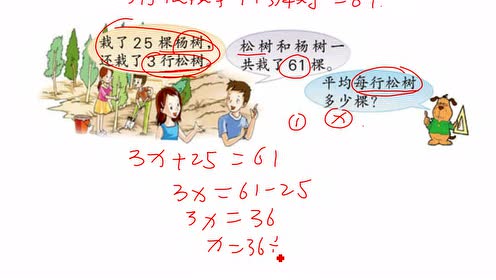 栽了25棵杨树，
还栽了3行松树
松树和杨树一
共栽了61棵。
平均每行松树
多少棵？
① x
3x+25=61
3x=61-25
3x=36
x=36÷